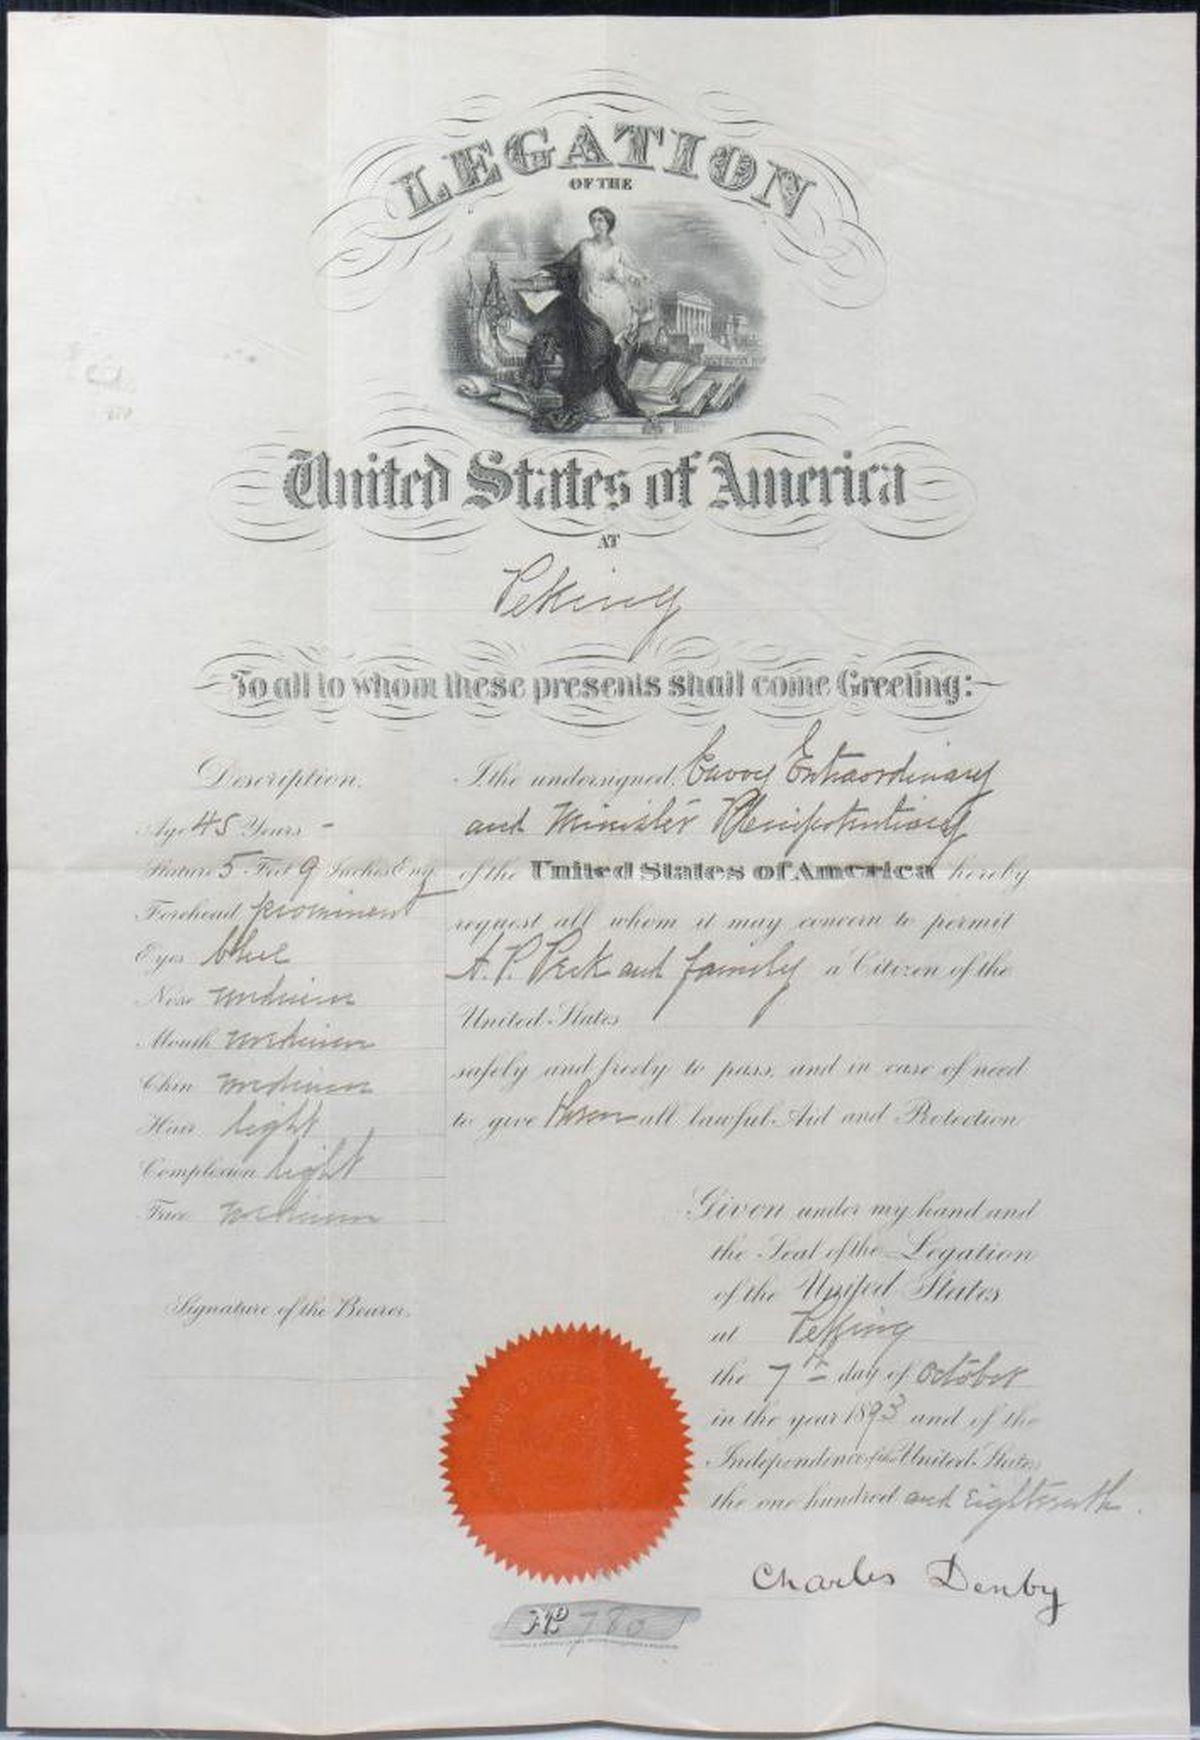 LEGATION
OF THE
United States of America
AT
Peking
To all to whom these presents shall come Greeting:
Description.
Age 45 Years -
Stature 5 Feet 9 Inches Eng.
Forehead prominent
Eyes blue
Nose medium
Mouth medium
Chin medium
Hair light
Complexion light
Face medium
Signature of the Bearer.
I the undersigned, Envoy Extraordinary
and Minister Plenipotentiary
of the United States of America hereby
request all whom it may concern to permit
A. P. Peck and family a Citizen of the
United States
safely and freely to pass, and in case of need
to give them all lawful Aid and Protection
Given under my hand and
the Seal of the Legation
of the United States
at Peking
the 7th day of October
in the year 1893 and of the
Independence of the United States
the one hundred and Eighteenth.
Charles Denby
No 780